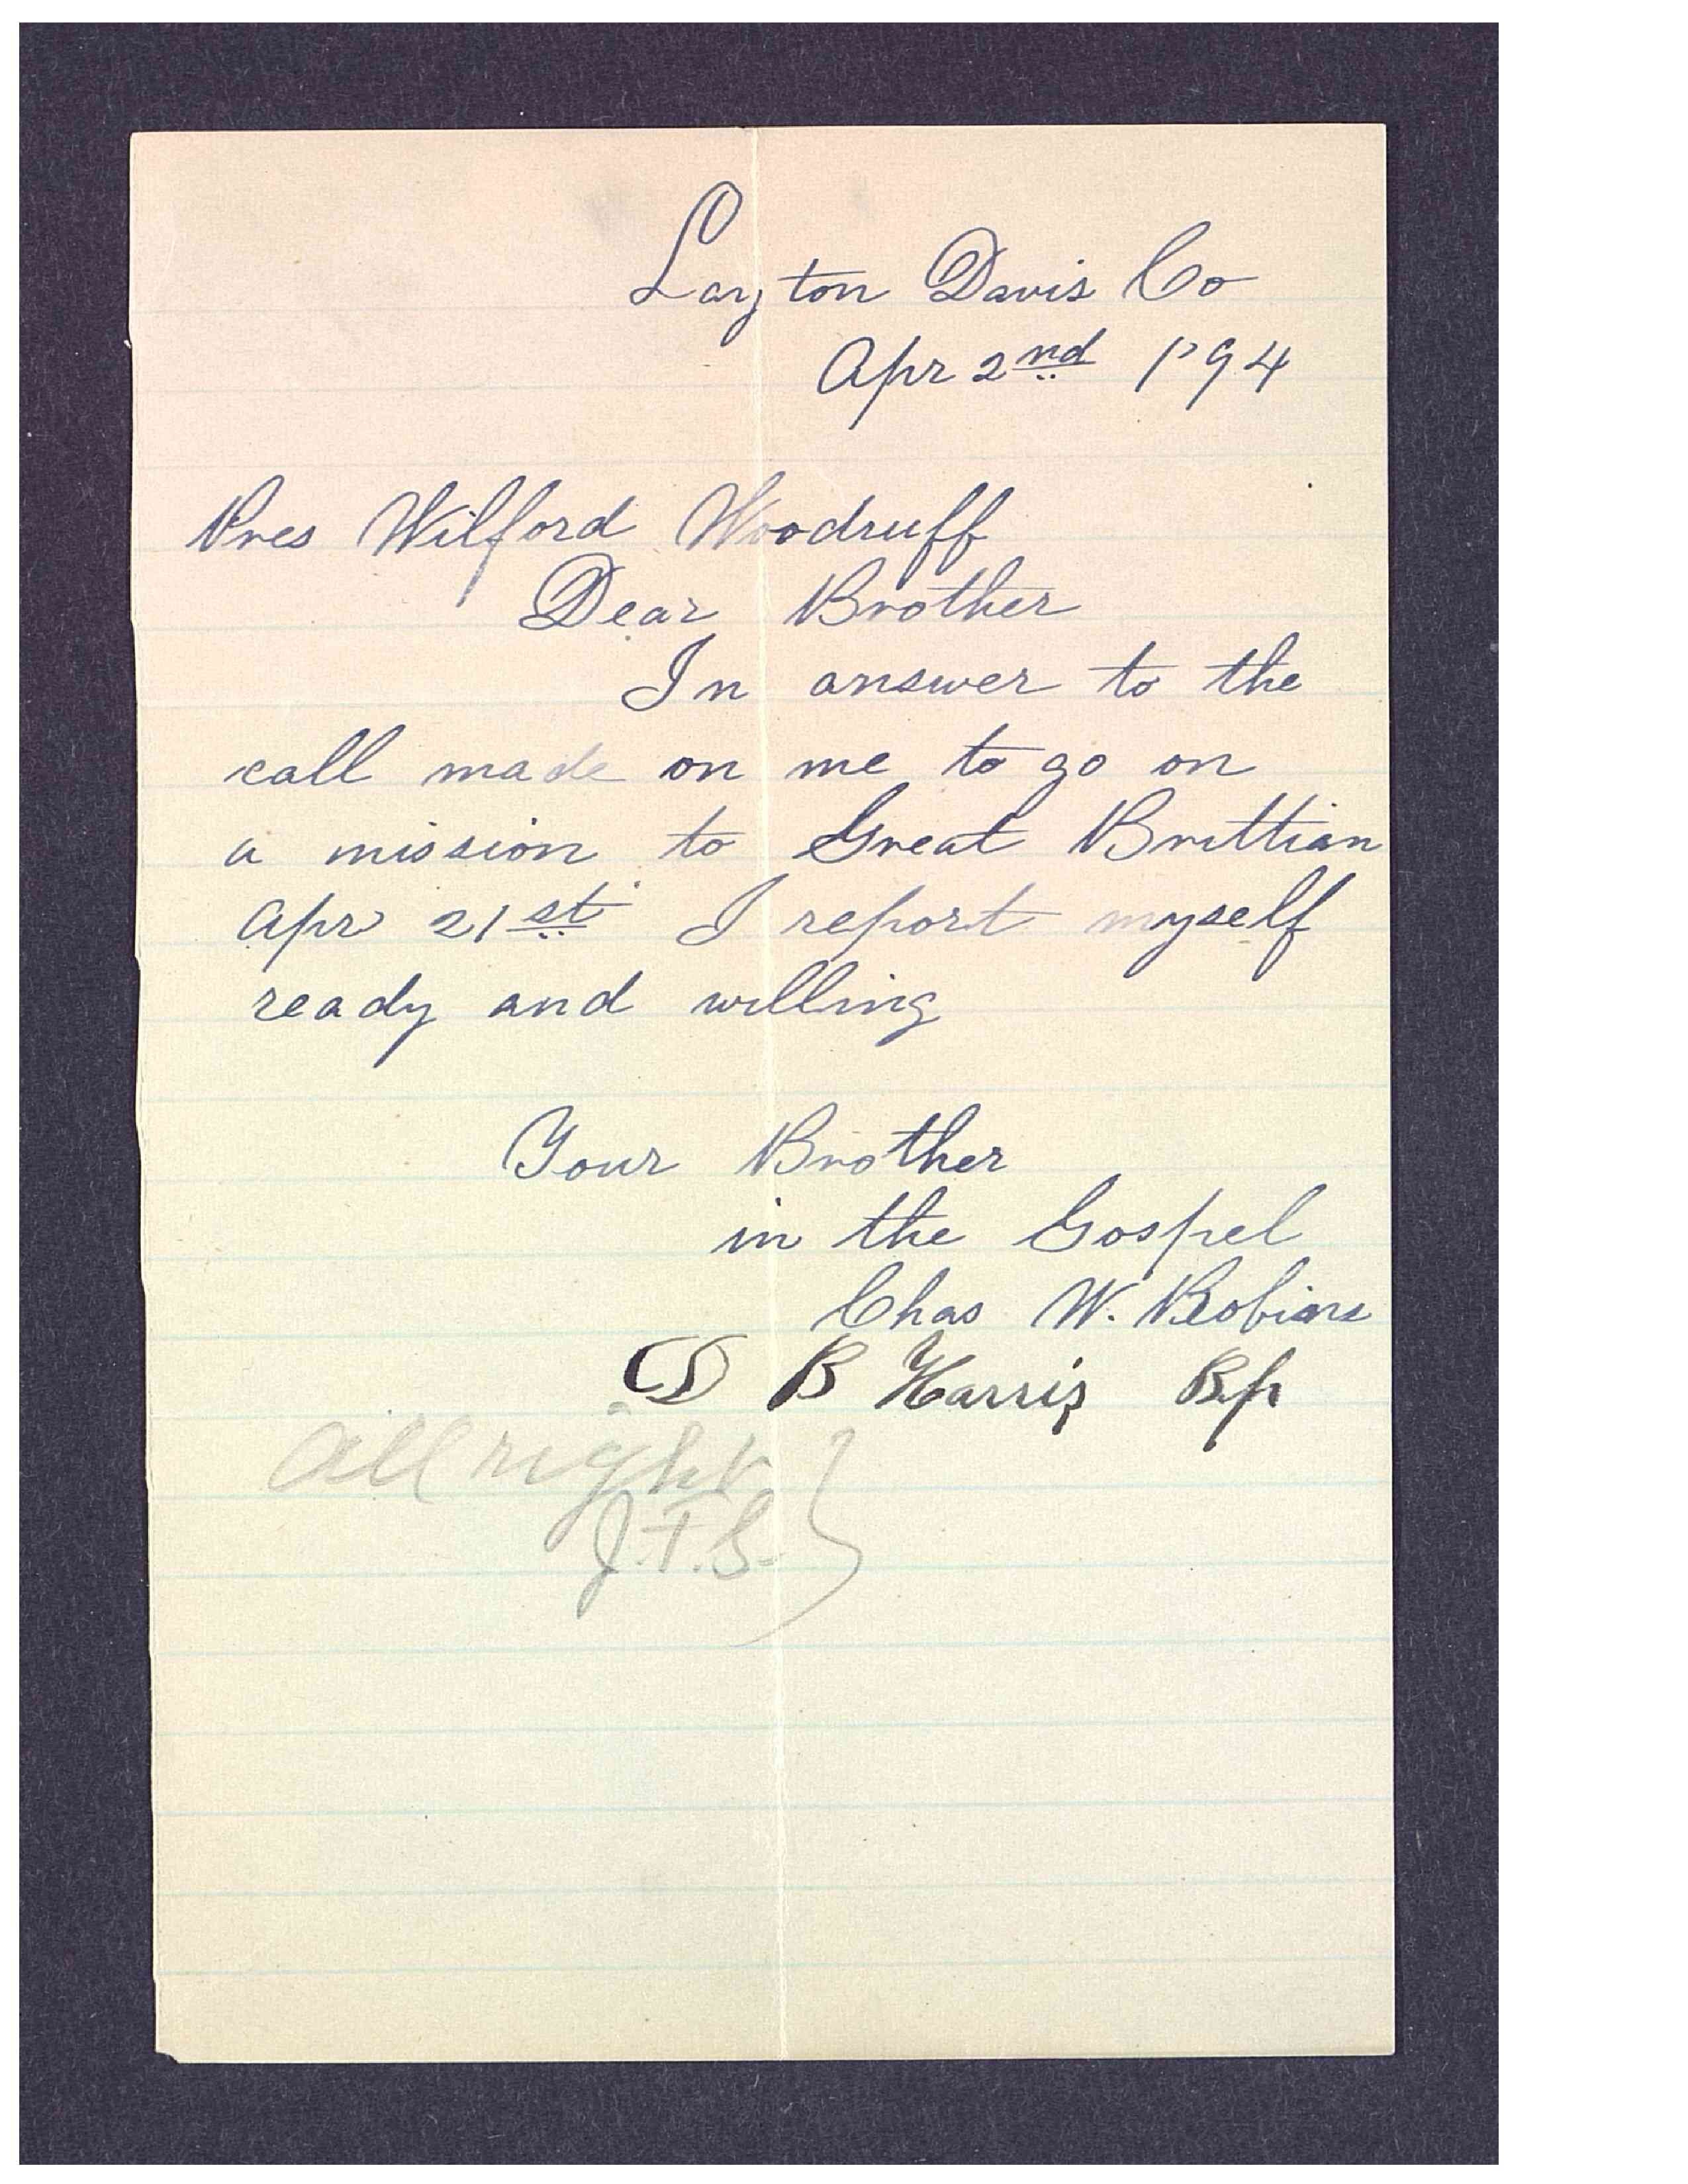 Layton Davis Co
Apr 2nd 1894
Pres Wilford Woodruff
Dear Brother
In answer to the
call made on me to go on
a mission to Great Brittian
Apr 21st I report myself
ready and willing
Your Brother
in the Gospel
Chas W. Robins
D B Harris Bp
All right
J.F.S.